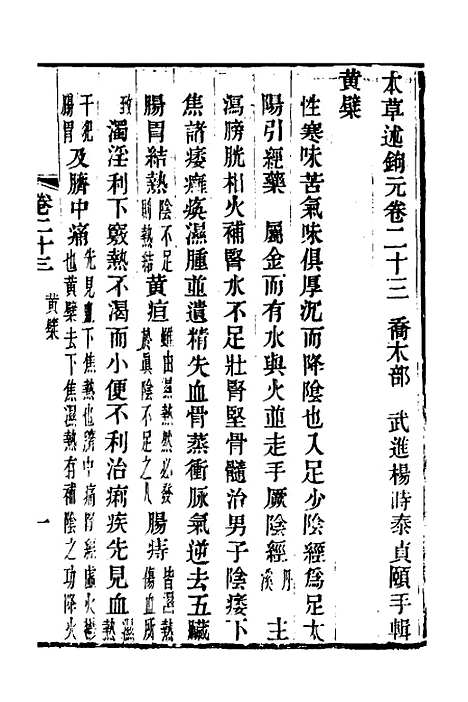 本草述鉤元卷二十三　喬木部　武進楊時泰貞頤手輯
黃檗
性寒味苦氣味俱厚沉而降陰也入足少陰經爲足太
陽引經藥　屬金而有水與火並走手厥陰經丹溪　主
瀉膀胱相火補腎水不足壯腎堅骨髓治男子陰痿下
焦諸痿癱瘓濕腫並遺精失血骨蒸衝脉氣逆去五臟
腸胃結熱陰不足則熱結黃疸雖由濕熱然必發於眞陰不足之人腸痔皆濕熱傷血所
致濁淫利下竅熱不渴而小便不利治痢疾先見血濕熱
干犯腸胃及臍中痛先見血下焦熱也臍中痛腎經虛火鬱也黃檗去下焦濕熱有補陰之功降火
卷二十三
黃檗
一